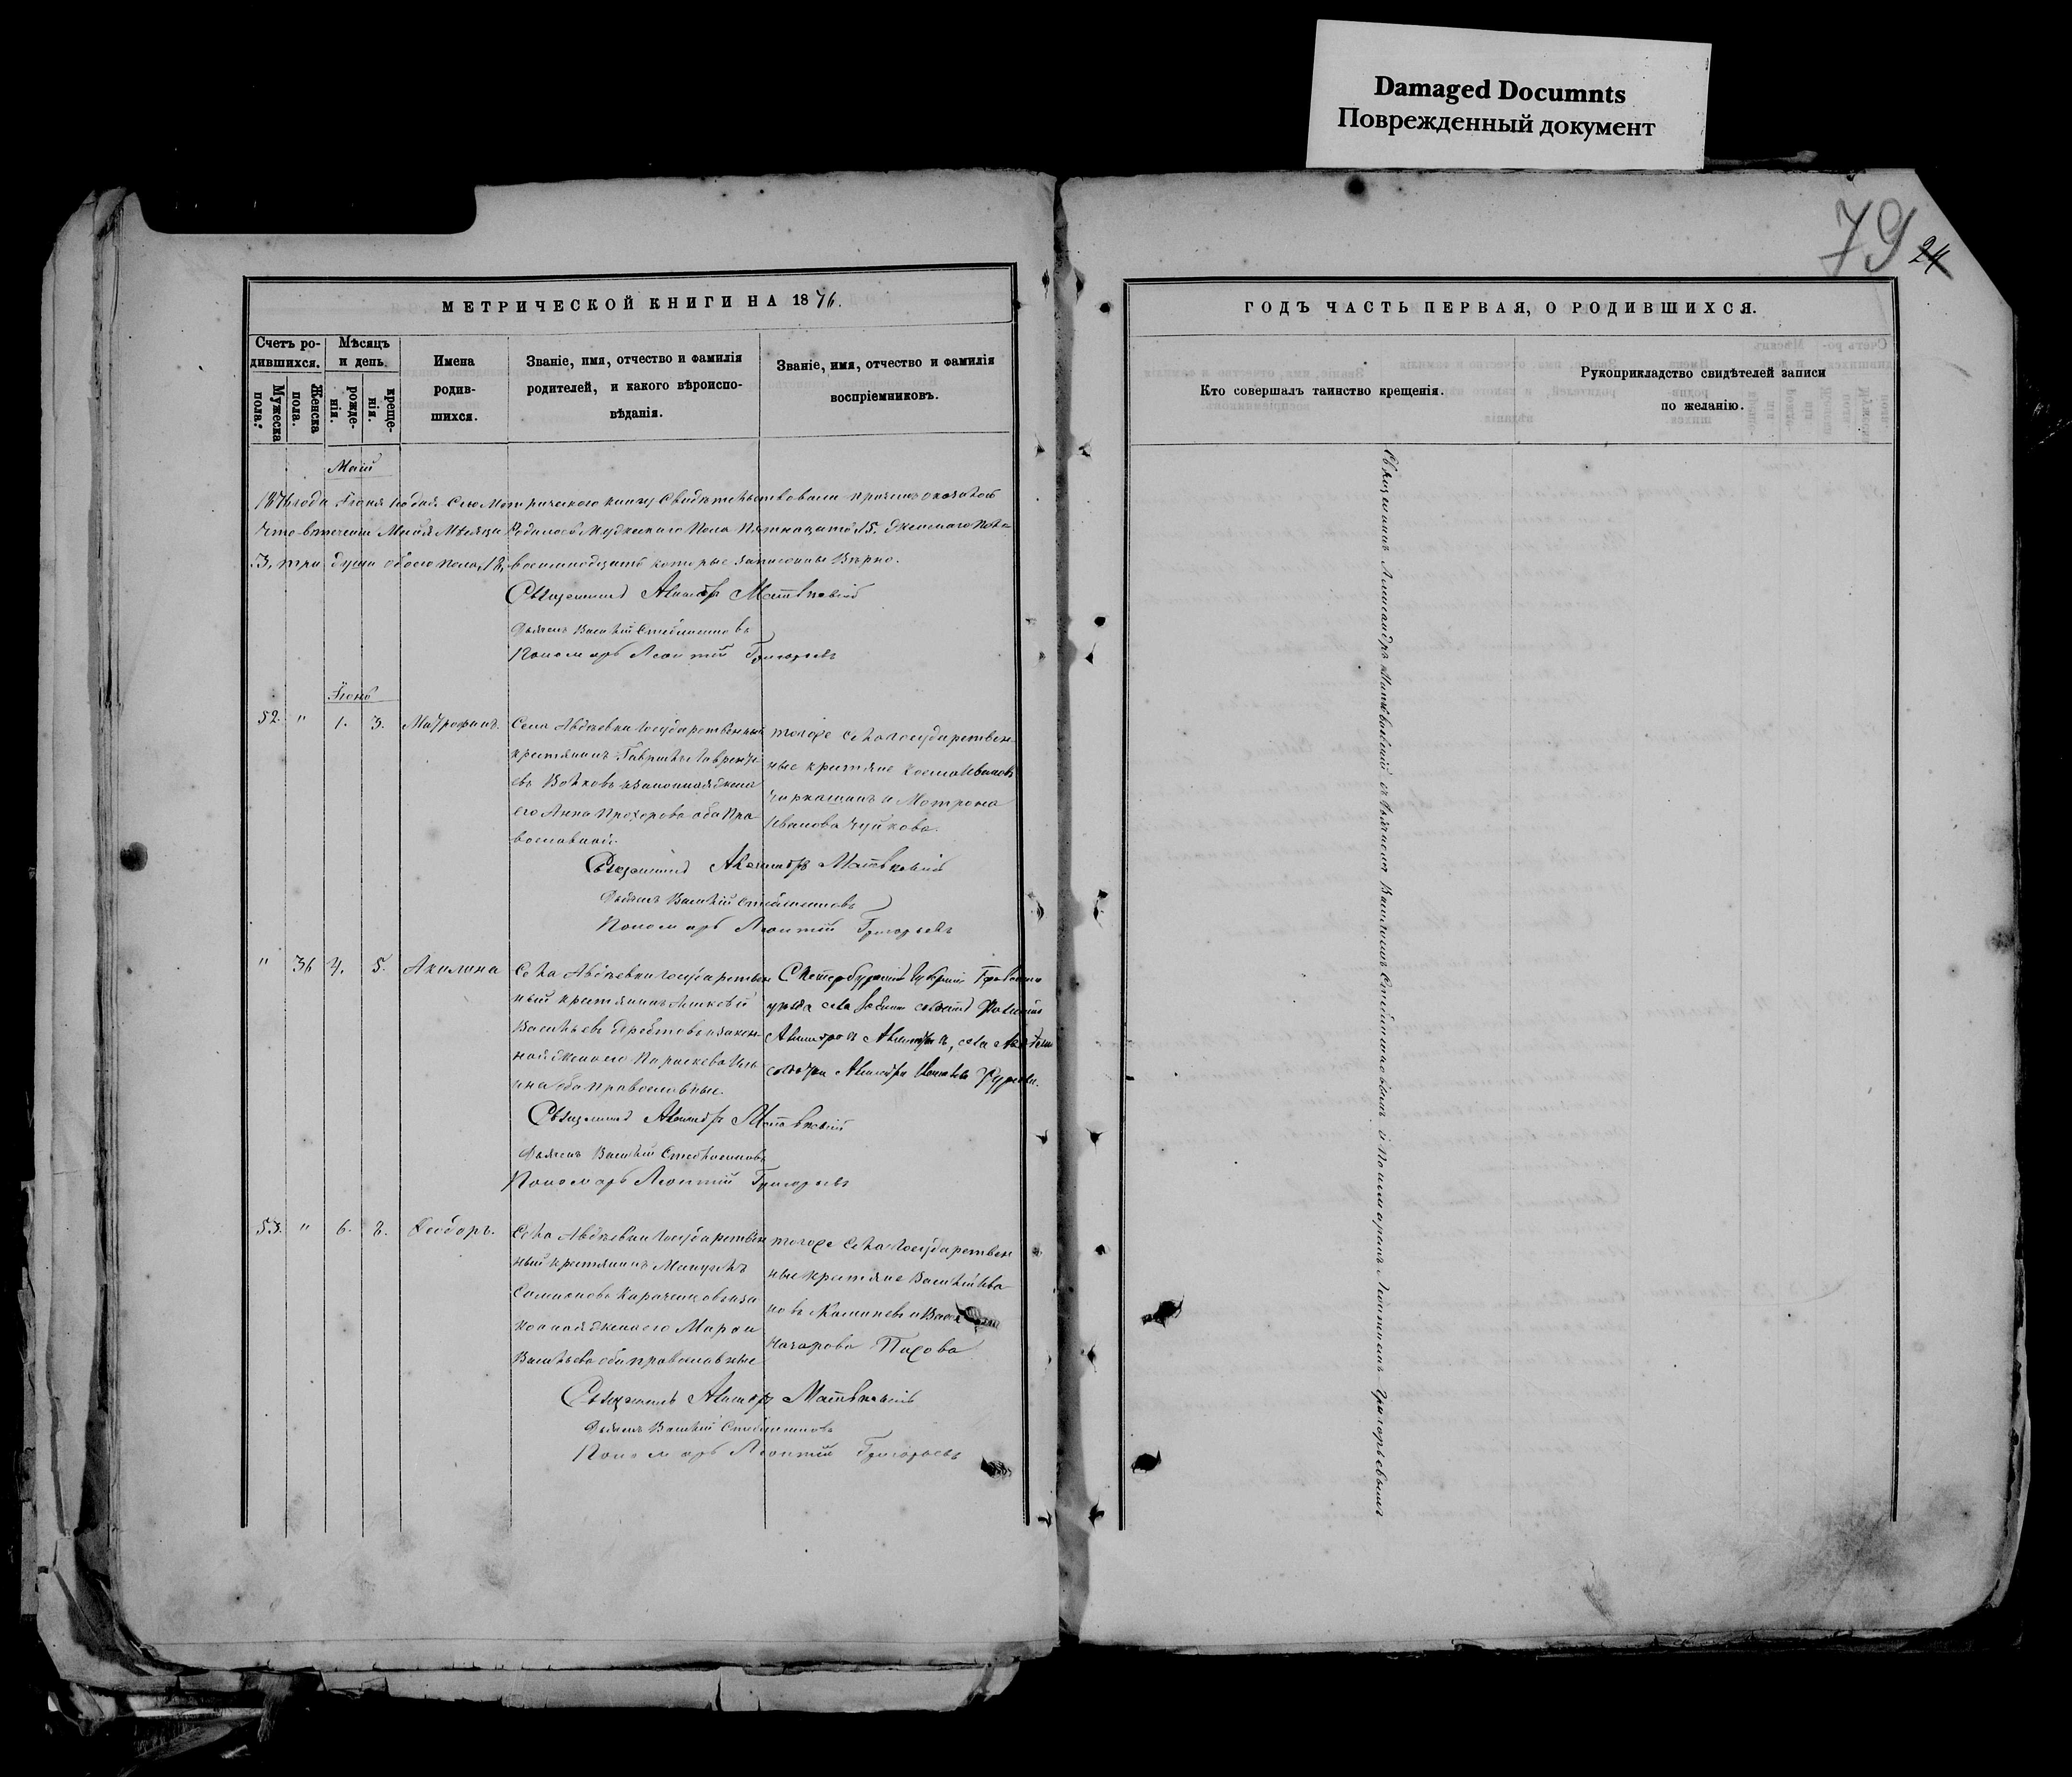 Damaged Documnts
Поврежденный документ
79 24
МЕТРИЧЕСКОЙ КНИГИ НА 1876.
Счетъ ро-
дившихся.
Мужеска
пола.
Женска
пола.
Мѣсяцъ
и день.
рожде-
нія.
креще-
нія.
Имена
родив-
шихся.
Званіе, имя, отчество и фамилія
родителей, и какого вѣроиспо-
вѣданія.
Званіе, имя, отчество и фамилія
воспріемниковъ.
Маій
1876 года Іюня 1го дня Сею Метрическою книгу Свидѣтельствовали причемъ оказалось
Что втеченіи Маія Мѣсяца Родилось Мужескаго Пола Пятнадцать 15. Женскаго пола
3. три душе обоего пола, 18, восемнадцать которые записаны Вѣрно.
Священникъ Александръ Матвѣевскій
Дьячекъ Василій
Пономарь Леонтій Григорьевъ
Іюнь
52. " 1. 3. Митрофанъ.
Села Авдѣевки Государственный
крестьянинъ Гавріилъ Лавренті-
евъ Волковъ и законная жена
его Анна Прохорова оба Пра
вославной.
тогоже села государствен-
ные крестьяне Косма Ивановъ
Черкашинъ и Мотрона
Иванова Чуйкова.
Священникъ Александръ Матвѣевскій
Дьячекъ Василій
Пономарь Леонтій Григорьевъ
" 36 4. 5. Акилина
Села Авдѣевки государствен
ный крестьянинъ Алексѣй
Васильевъ и закон-
ная жена его Параскева Иль
ина оба православные.
С Петербургской Губерніи
уѣзда села
Александровъ, села
Александра
Священникъ Александръ Матвѣевскій
Дьячекъ Василій
Пономарь Леонтій Григорьевъ
53. " 6. 8. Ѳеодоръ.
Села Авдѣевки Государствен
ный крестьянинъ Мануилъ
Симеоновъ и за
конная жена его Марѳа
Васильева оба православные
тогоже Села Государствен
ные крестьяне Василій Ива
новъ и Васи
Назарова Пахова
Священникъ Александръ Матвѣевскій
Дьячекъ Василій
Пономарь Леонтій Григорьевъ
ГОДЪ ЧАСТЬ ПЕРВАЯ, О РОДИВШИХСЯ.
Кто совершалъ таинство крещенія.
Рукоприкладство свидѣтелей записи
по желанію.
Священникъ Александръ Матвѣевскій съ дьячкомъ Василіемъ и Пономаремъ Леонтіемъ Григорьевымъ